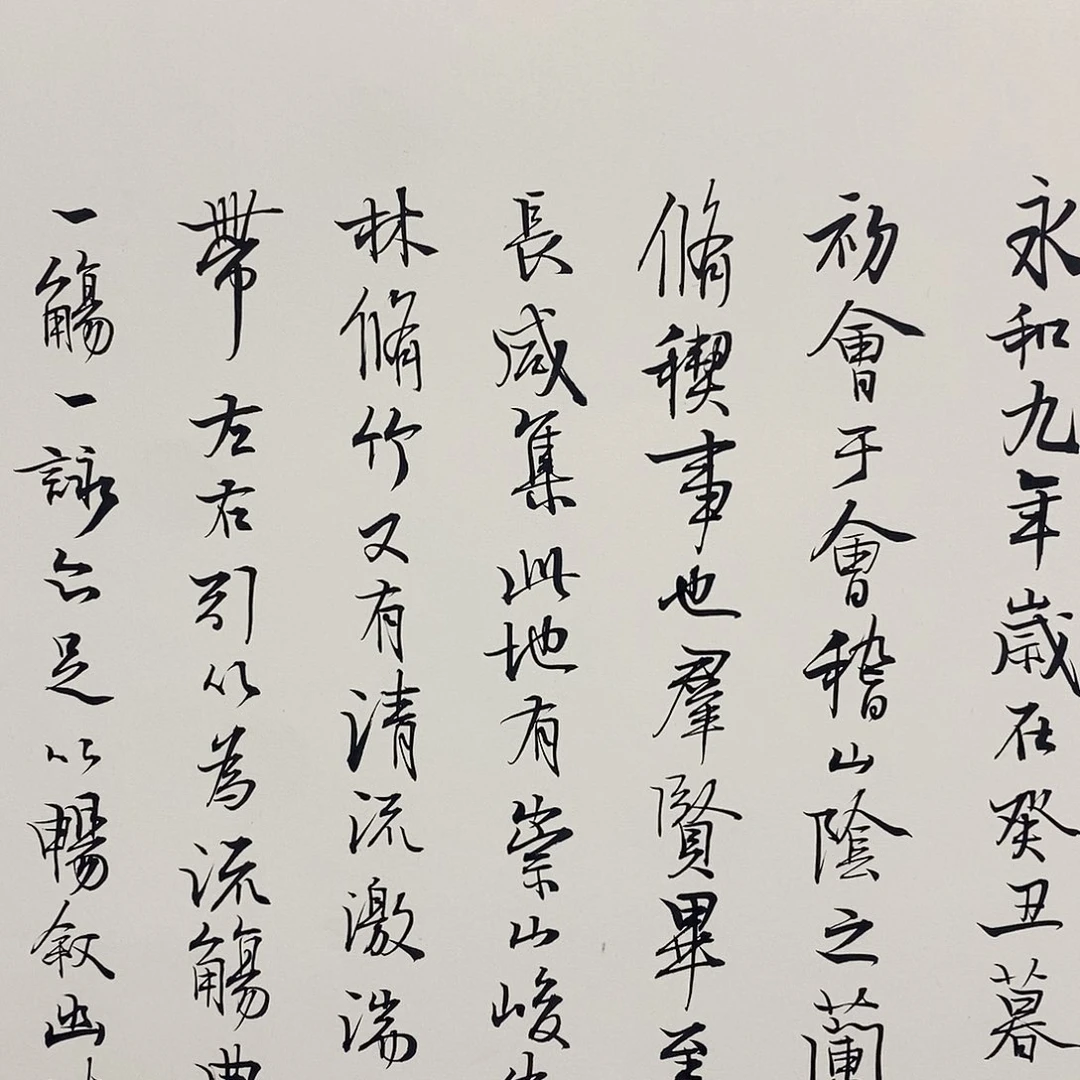 永和九年歲在癸丑暮
初會于會稽山陰之蘭
脩稧事也羣賢畢至
長咸集此地有崇山峻
林脩竹又有清流激湍
帶左右引以為流觴曲
一觴一詠亦足以暢敘幽